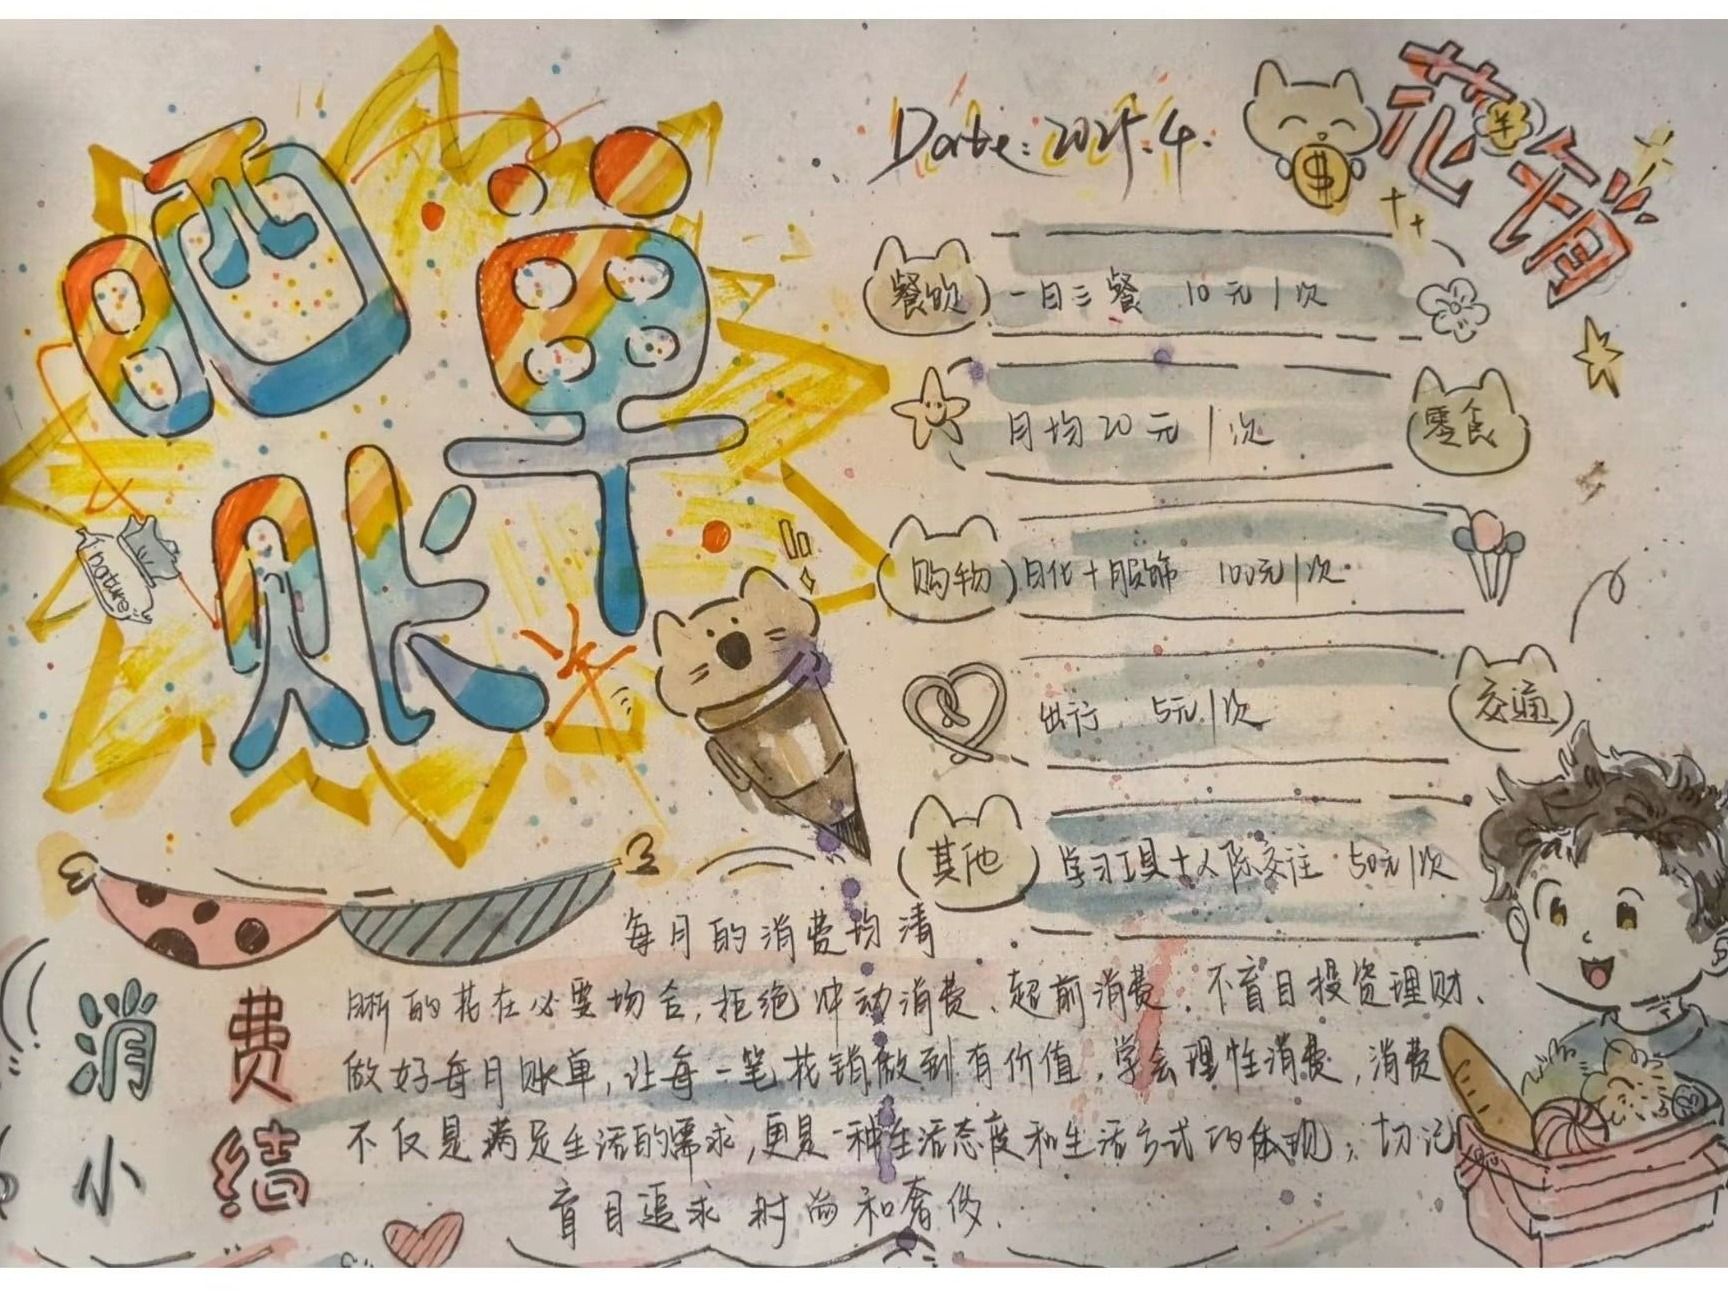 晒单
账
nature
Date: 2025.4.
花销
餐饮 一日三餐 10元/次
月均20元/次 零食
购物 日化+服饰 100元/次
出行 5元/次 交通
其他 学习工具+人际交往 50元/次
消费
小结
每月的消费均清
晰的花在必要场合,拒绝冲动消费、超前消费、不盲目投资理财、
做好每月账单,让每一笔花销做到有价值,学会理性消费,消费
不仅是满足生活的需求,更是一种生活态度和生活方式的体现;切记
盲目追求时尚和奢侈.